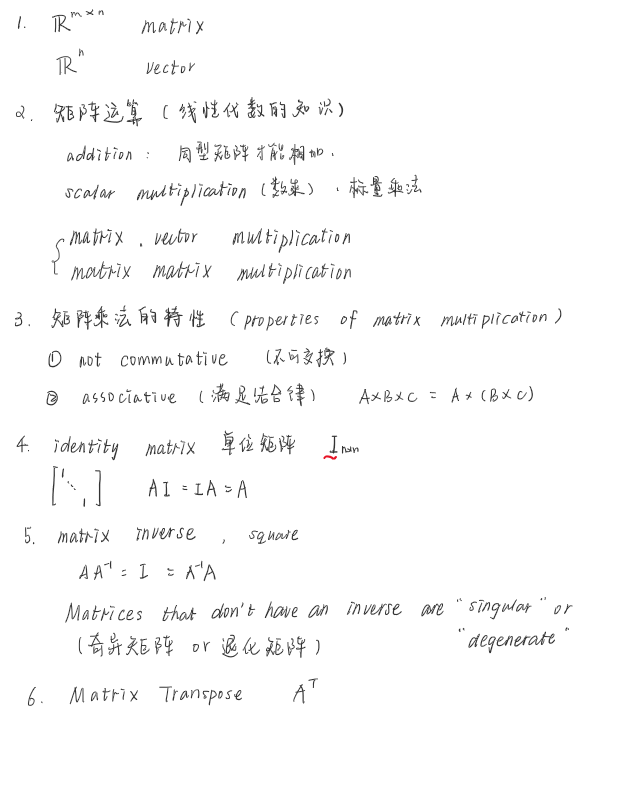 1. ℝ^{m×n} matrix
ℝ^n vector
2. 矩阵运算 (线性代数的知识)
addition: 同型矩阵才能相加.
scalar multiplication (数乘). 标量乘法
{ matrix . vector multiplication
matrix matrix multiplication
3. 矩阵乘法的特性 (properties of matrix multiplication)
① not commutative (不可交换)
② associative (满足结合律) A×B×C = A×(B×C)
4. identity matrix 单位矩阵 I_{n×n}
[1 ⋱ 1] AI = IA = A
5. matrix inverse, square
AA^{-1} = I = A^{-1}A
Matrices that don't have an inverse are "singular" or
(奇异矩阵 or 退化矩阵) "degenerate"
6. Matrix Transpose A^T